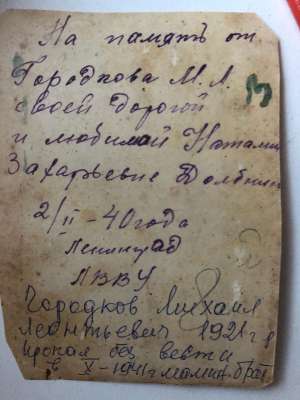 На память от
Городкова М. Л.
своей дорогой
и любимой Наталии
Захарьевне Долбни
2/II - 40 года
Ленинград
ЛВВУ
Городков Михаил
Леонтьевич 1921 г р
пропал без вести
в X - 1941 г мамин брат